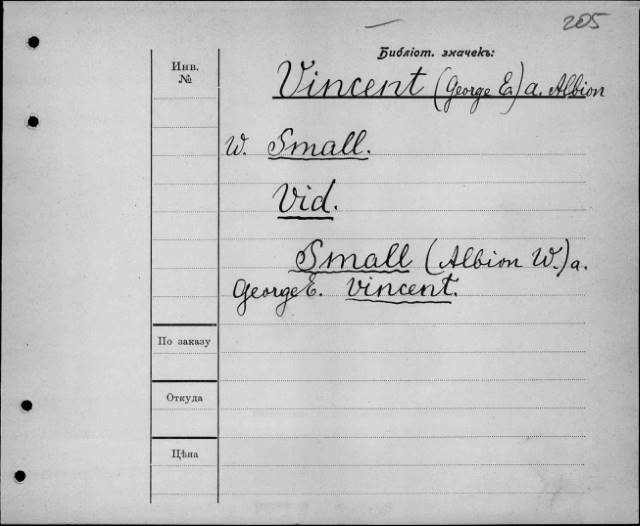 205
Библіот. значекъ:
Инв.
№
Vincent (George E.) a. Albion
W. Small.
Vid.
Small (Albion W.) a.
George E. Vincent.
По заказу
Откуда
Цѣна